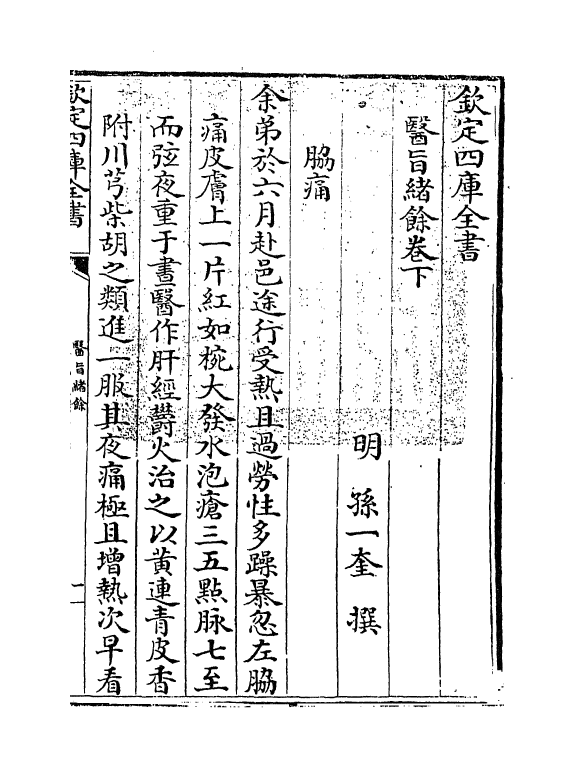 欽定四庫全書
醫旨緒餘卷下
明 孫一奎 撰
脇痛
余弟於六月赴邑途行受熱且過勞性多躁暴忽左脇
痛皮膚上一片紅如椀大發水泡瘡三五點脉七至
而弦夜重于晝醫作肝經鬱火治之以黄連青皮香
附川芎柴胡之類進一服其夜痛極且增熱次早看
欽定四庫全書
醫旨緒餘
一